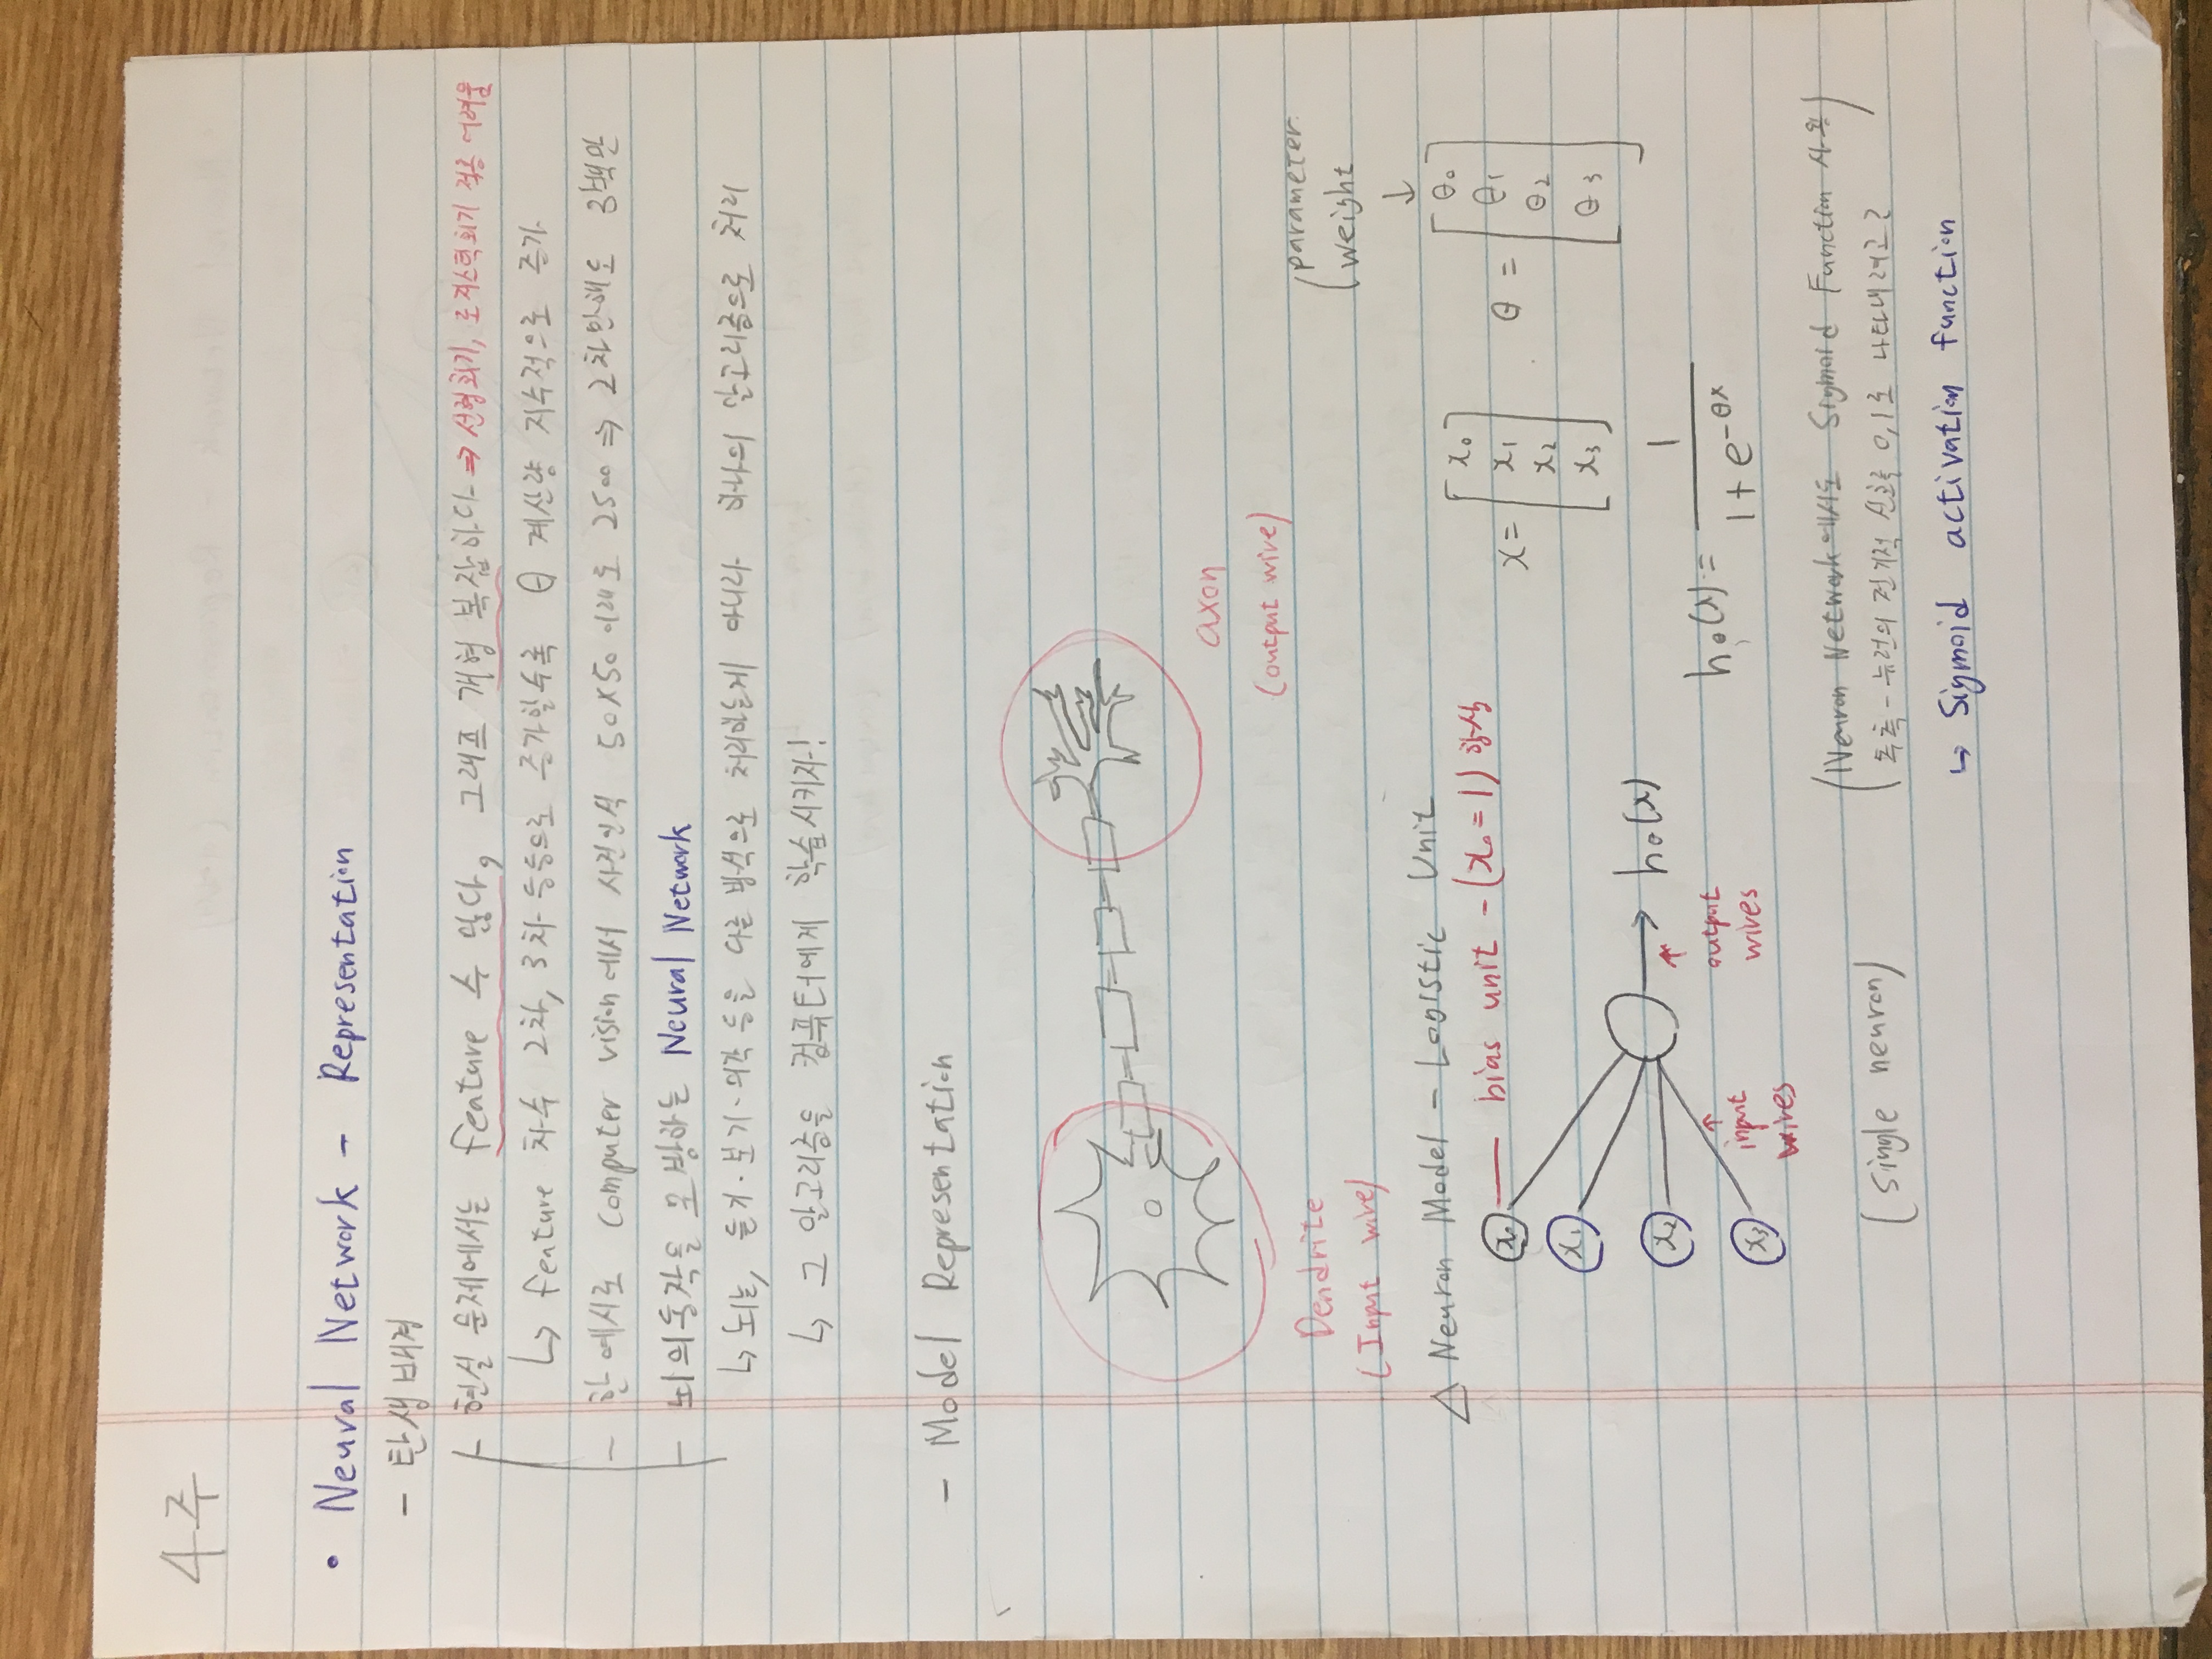 4주
• Neural Network - Representation
- 탄생배경
- 현실 문제에서는 feature 수 많다, 그래프 개형 복잡하다 ⇒ 선형회기, 로지스틱회기 적용 어려움
↳ feature 차수 2차, 3차 등등으로 증가할수록 θ 계산량 지수적으로 증가
- 한 예시로 computer vision에서 사진인식 50×50 이래도 2500 ⇒ 2차만해도 3백만
- 뇌의 동작을 모방하는 Neural Network
↳ 뇌는, 듣기·보기· 등을 다른 방식으로 처리하는게 아니라 하나의 알고리즘으로 처리
↳ 그 알고리즘을 컴퓨터에게 학습시키자!
- Model Representation
axon
(output wire)
Dendrite
(Input wire)
parameter
weight
↓
△ Neuron Model - Logistic Unit
x₀ bias unit - (x₀ = 1) 항상
x₁
x₂
x₃
input
wires
output
wires
h₀(x)
x = [x₀ x₁ x₂ x₃]
θ = [θ₀ θ₁ θ₂ θ₃]
hθ(x) = 1 / (1 + e^-θx)
(single neuron)
(Neuron Network에서도 Sigmoid Function 사용)
- 뉴런의 전기적 신호를 0,1로 나타내려고
↳ Sigmoid activation function